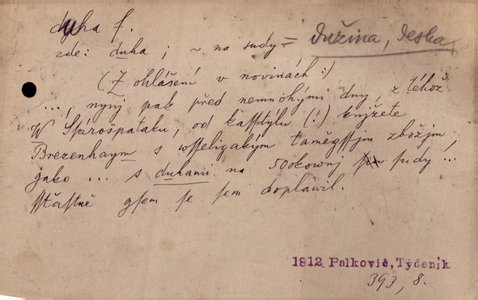 dyha f.
zde: duha ; ~ na sudy = dužina, deska
(Z ohlášení v novinách:)
..., nyný pak před nemnohými dny, z téhož
W Ssárosspataku, od kasstýlu (!) knjžete
Brezenhaym s wsseligakým tamĕgssjm zbožjm
gako ... s duhami na 50okowný sudy ...
sstiastnĕ gsem se sem doplawil.
1812. Palkovič, Týdeník
393, 8.